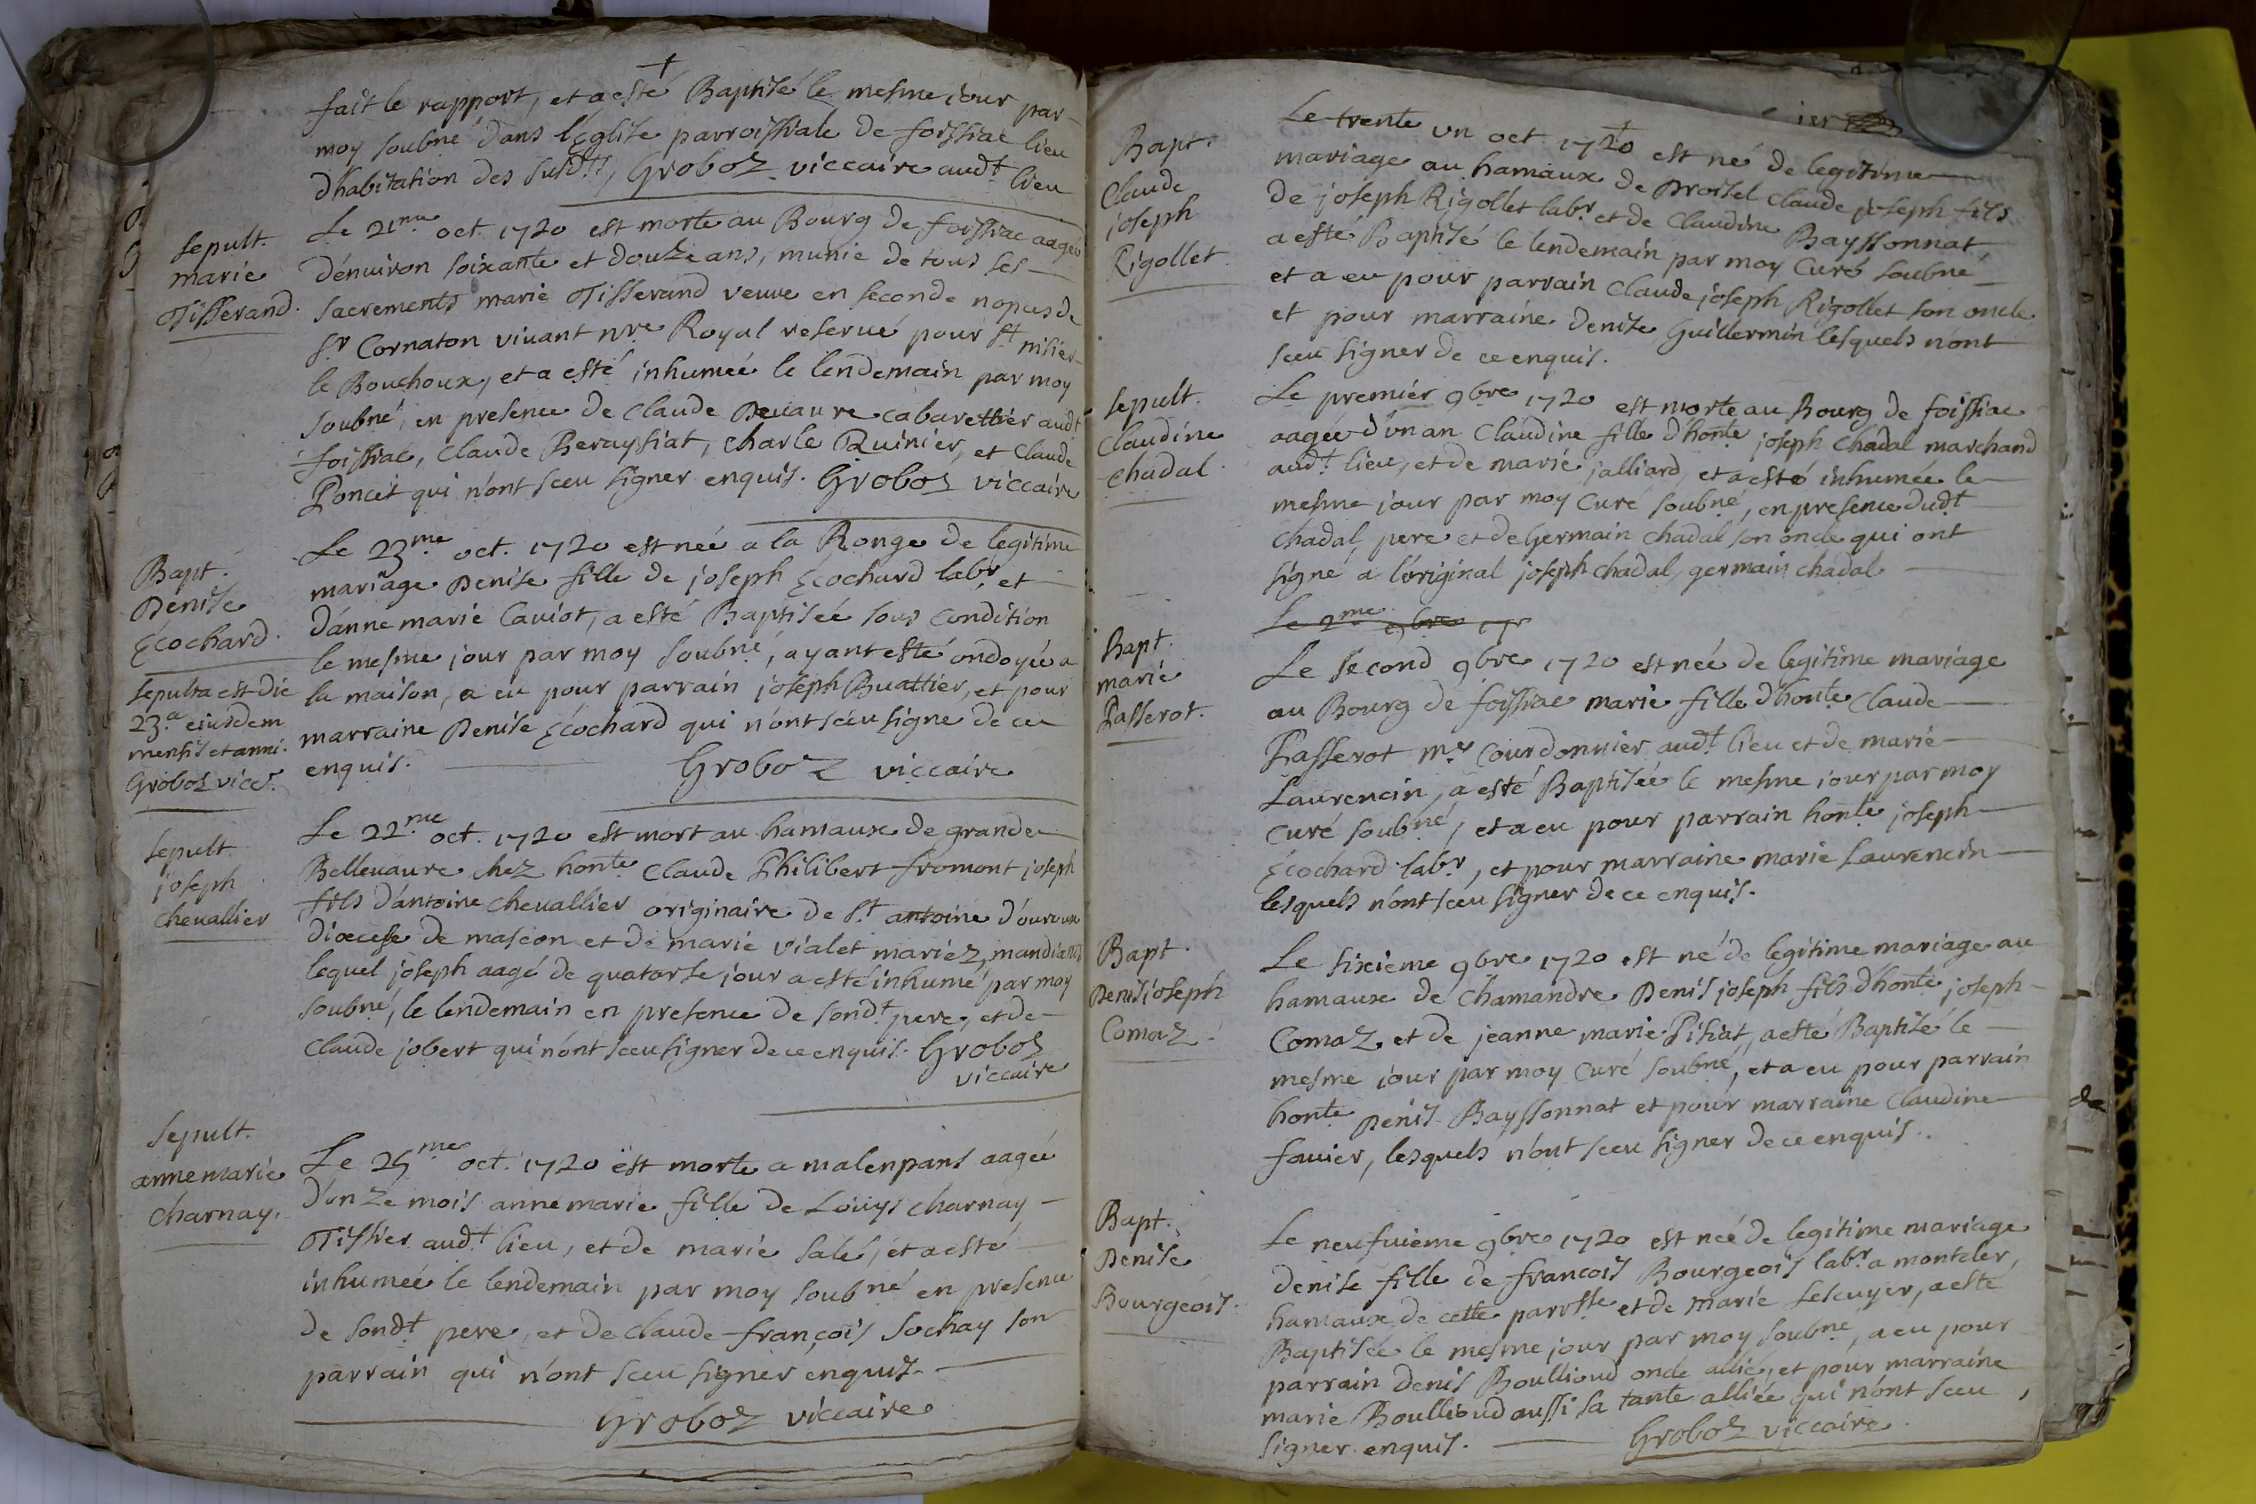 fait le rapport, et a esté Baptisé le mesme iour par
moy soubné dans l'Eglise parroissiale de foissiac lieu
d'habitation des susdts, Groboz viccaire audt lieu
sepult.
marie
Tisserand.
Le 21me oct. 1720 est morte au Bourg de foissiac aagée
d'enuiron soixante et douze ans, munie de tous ses
sacrements marie Tisserand veuve en seconde nopces de
sr Cornaton viuant nre Royal reserué pour st nisier
le Bouchoux, et a esté inhumée le lendemain par moy
soubné, en presence de claude Deuaure cabarettier audt
foissiac, Claude Berayssiat, charle Quinier, et Claude
Poncet qui n'ont sceu signer enquis. Groboz viccaire
Bapt.
Denise
Ecochard.
sepulta est die
23.a eiusdem
mensis et anni.
Groboz vicc.
Le 23me oct. 1720 est née a la Ronge de legitime
mariage Denise fille de joseph Ecochard labr et
d'anne marie Cauiot, a esté Baptisée sous condition
le mesme jour par moy soubné, ayant esté ondoyée a
la maison, a eu pour parrain joseph Buattier, et pour
marraine Denise Ecochard qui n'ont sceu signe de ce
enquis. Groboz viccaire
sepult.
joseph
chevallier
Le 22me oct. 1720 est mort au hamaux de grande
Belleuaure chez honte Claude Philibert fromont joseph
fils d'antoine chevallier originaire de st antoine d'ouroux
diocese de mascon et de marie vialet mariez, mandians
lequel joseph aagé de quatorse jour a esté inhumé par moy
soubné, le lendemain en presence de sondt pere, et de
claude jobert qui n'ont sceu signer de ce enquis. Groboz
viccaire
sepult.
anne marie
charnay.
Le 25me oct. 1720 est morte a malenpans aagée
d'onze mois anne marie fille de Loüys charnay
Tissier audt lieu, et de marie salé, et a esté
inhumée le lendemain par moy soubné en presence
de sondt pere, et de claude françois sochay son
parrain qui n'ont sceu signer enquis.
Groboz viccaire
Bapt.
Claude
joseph
Rigollet
Le trente un oct. 1720 est né de legitime
mariage au hamaux de Droisel claude joseph fils
de joseph Rigollet labr et de Claudine Bayssonnat
a esté Baptisé le lendemain par moy Curé soubné
et a eu pour parrain Claude joseph Rigollet son oncle
et pour marraine Denise Guillermin lesquels n'ont
sceu signer de ce enquis.
sepult.
Claudine
chadal.
Le premier 9bre 1720 est morte au Bourg de foissiac
aagée d'un an Claudine fille d'honte joseph Chadal marchand
audt lieu, et de marie jalliard, et a esté inhumée le
mesme jour par moy curé soubné, en presence dudt
chadal, pere et de Germain chadal son oncle qui ont
signé a l'original joseph chadal, germain chadal
Le 2me 9bre 17
Bapt.
marie
Passerot.
Le second 9bre 1720 est née de legitime mariage
au Bourg de foissiac marie fille d'honte Claude
Passerot mre Courdonnier audt lieu et de marie
Laurencin, a esté Baptisée le mesme iour par moy
curé soubné, et a eu pour parrain honte joseph
Ecochard labr, et pour marraine marie Laurencin
lesquels n'ont sceu signer de ce enquis.
Bapt.
Denis joseph
Comaz.
Le sixieme 9bre 1720 est né de legitime mariage au
hamaux de Chamandre Denis joseph fils d'honte joseph
Comaz et de jeanne marie Pisiat, a esté Baptisé le
mesme iour par moy Curé soubné, et a eu pour parrain
honte Denis Bayssonnat et pour marraine Claudine
fauier, lesquels n'ont sceu signer de ce enquis.
Bapt.
Denise
Bourgeois.
Le neufuieme 9bre 1720 est née de legitime mariage
denise fille de françois Bourgeois labr a monteler,
hamaux de cette parosse et de marie Lescuyer, a esté
Baptisée le mesme jour par moy soubné, a eu pour
parrain denis Boullioud oncle allié, et pour marraine
marie Boullioud aussi sa tante alliée qui n'ont sceu
signer enquis. Groboz viccaire